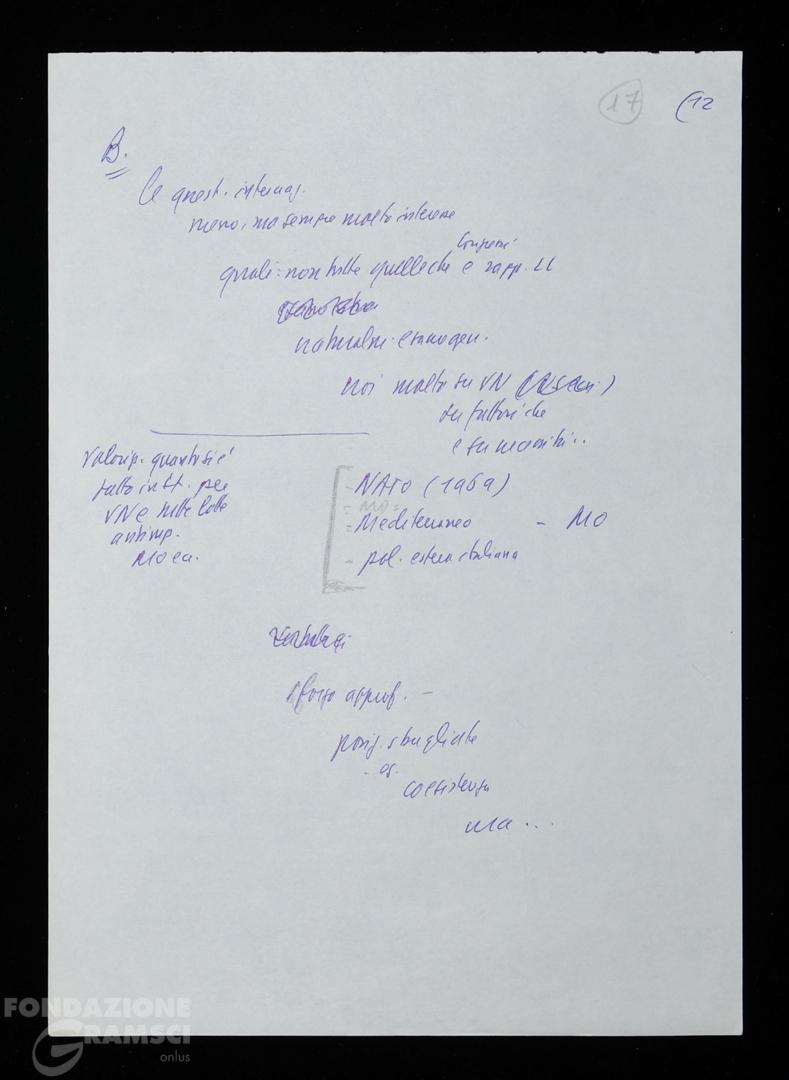 17 (12
B.
Le quest. internaz.
meno, ma sempre molto intense
Congressi
quali: non tutte quelle che e rapp. LL
naturalm.
noi molto su VN
su fattori che
e su
Valorizz. quanto si è
fatto in tt. per
VN e tutte lotte
antimp.
MO ecc.
- NATO (1969)
- MO -
- Mediterraneo - MO
- pol. estera italiana
sforzo approf. -
posiz. sbagliate
es.
coesistenza
ma ...
FONDAZIONE
GRAMSCI
onlus